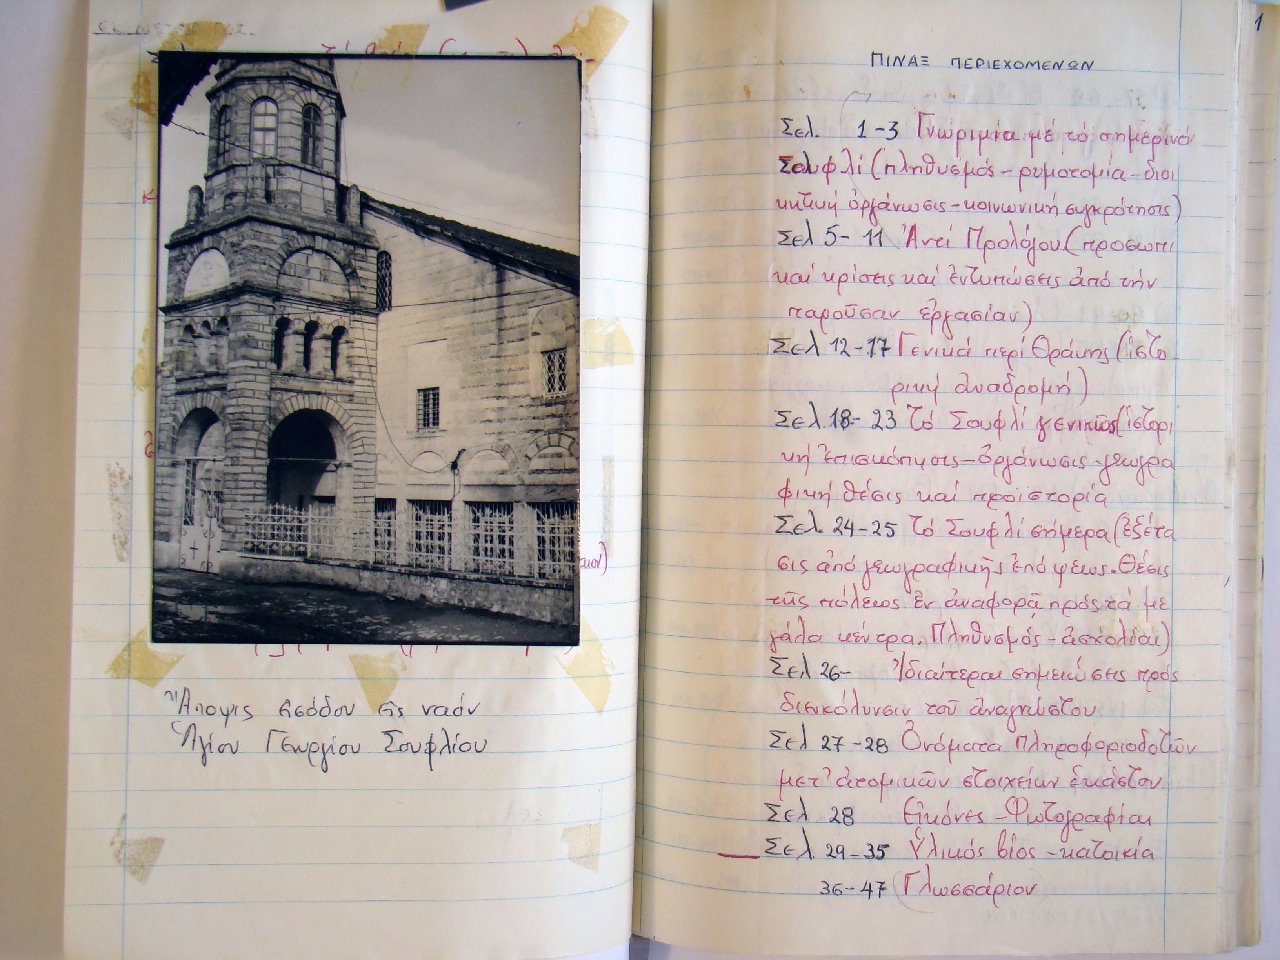 Ἄποψις εἰσόδου εἰς ναόν
Ἁγίου Γεωργίου Σουφλίου
1
ΠΙΝΑΞ ΠΕΡΙΕΧΟΜΕΝΩΝ
Σελ. 1-3 Γνωριμία μέ τό σημερινό
Σουφλί (πληθυσμός - ρυμοτομία - διοι
κητική ὀργάνωσις - κοινωνική συγκρότησις)
Σελ 5-11 Ἀντί Προλόγου (προσωπι
καί κρίσεις καί ἐντυπώσεις ἀπό τήν
παροῦσαν ἐργασίαν)
Σελ 12-17 Γενικά περί Θράκης (ἱστο
ρική ἀναδρομή)
Σελ. 18-23 τό Σουφλί γενικῶς (ἱστορι
κή ἐπισκόπησις - ὀργάνωσις - γεωγρα
φική θέσις καί προϊστορία
Σελ. 24-25 τό Σουφλί σήμερα (ἐξέτα
σις ἀπό γεωγραφικῆς ἐπόψεως. Θέσις
τῆς πόλεως ἐν ἀναφορᾷ πρός τά με
γάλα κέντρα. Πληθυσμός - ἀσχολίαι)
Σελ 26- Ἰδιαίτεραι σημειώσεις πρός
διευκόλυνσιν τοῦ ἀναγνώστου
Σελ 27-28 Ὀνόματα πληροφοριοδοτῶν
μετ' ἀτομικῶν στοιχείων ἑκάστου
Σελ 28 Εἰκόνες - Φωτογραφίαι
Σελ. 29-35 Ὑλικός βίος - κατοικία
36-47 Γλωσσάριον